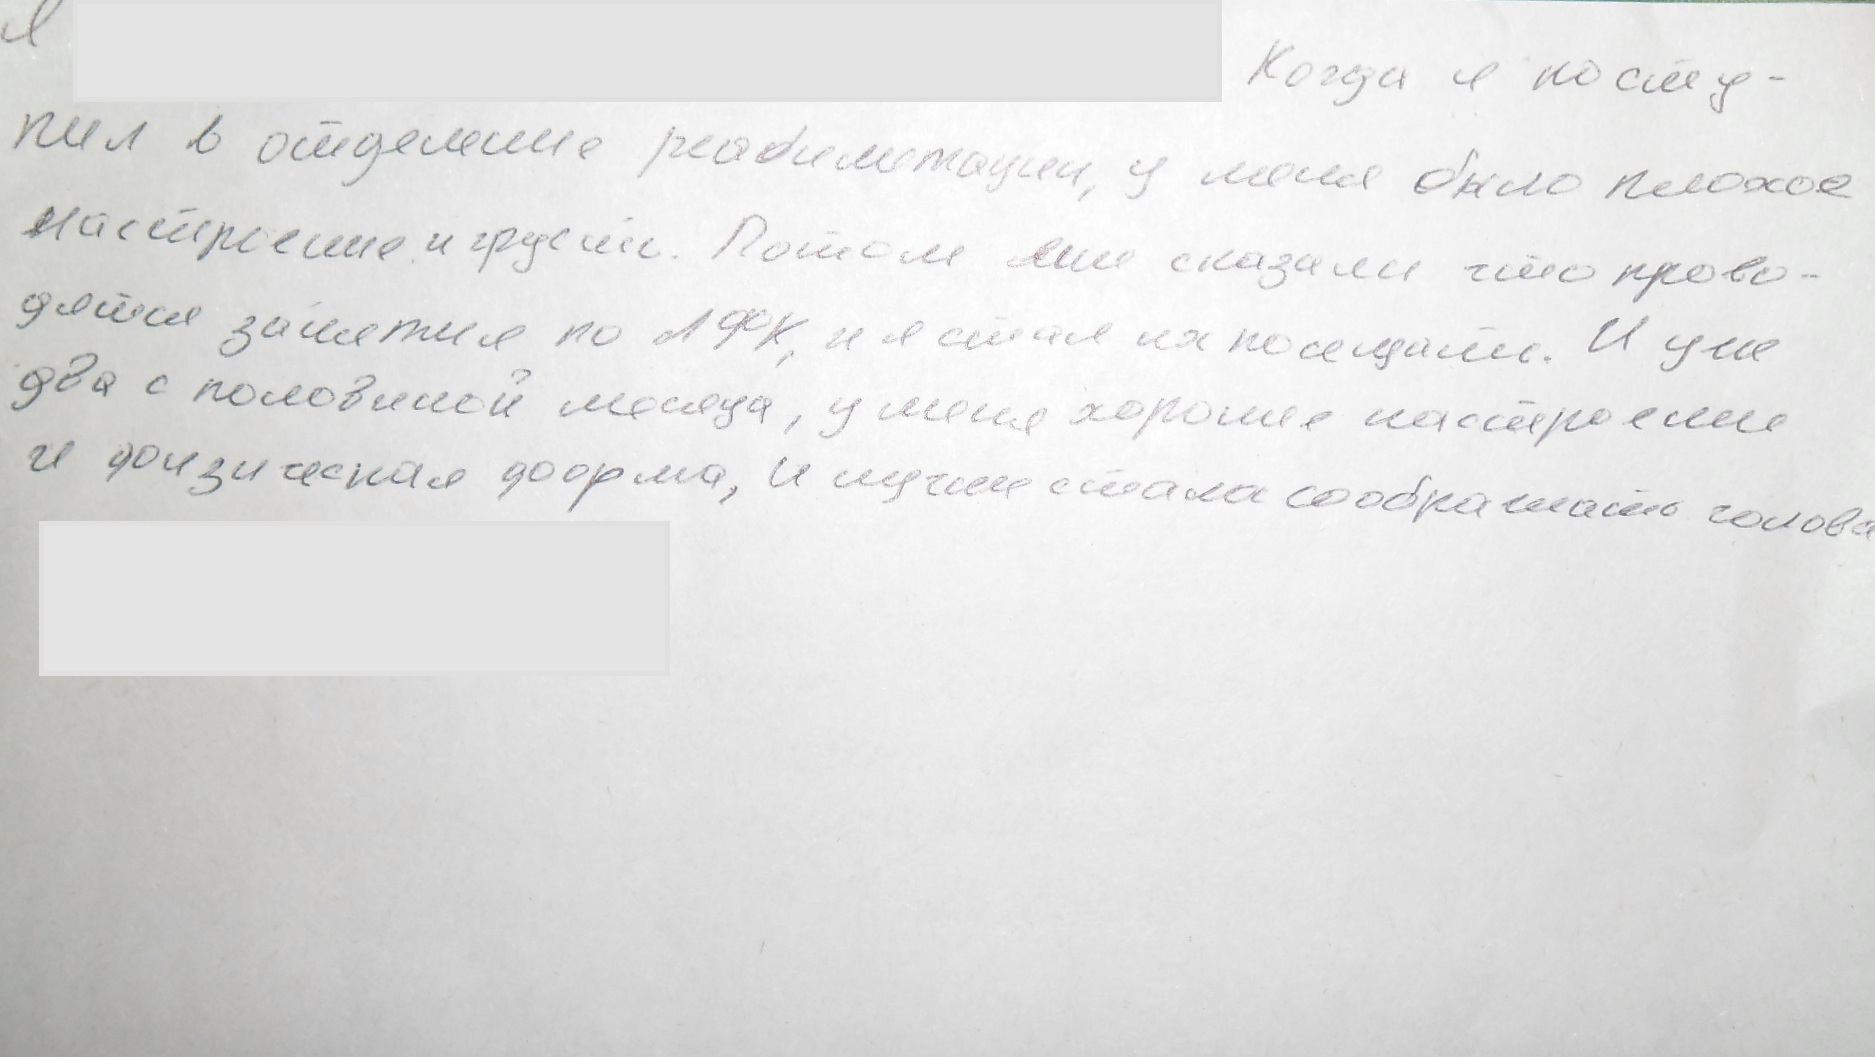 Я
Когда я посту-
пил в отделение реабилитации, у меня было плохое
настроение и грусть. Потом мне сказали что прово-
дятся занятия по ЛФК, и я стал их посещать. И уже
два с половиной месяца, у меня хорошее настроение
и физическая форма, и лучше стала соображать голова